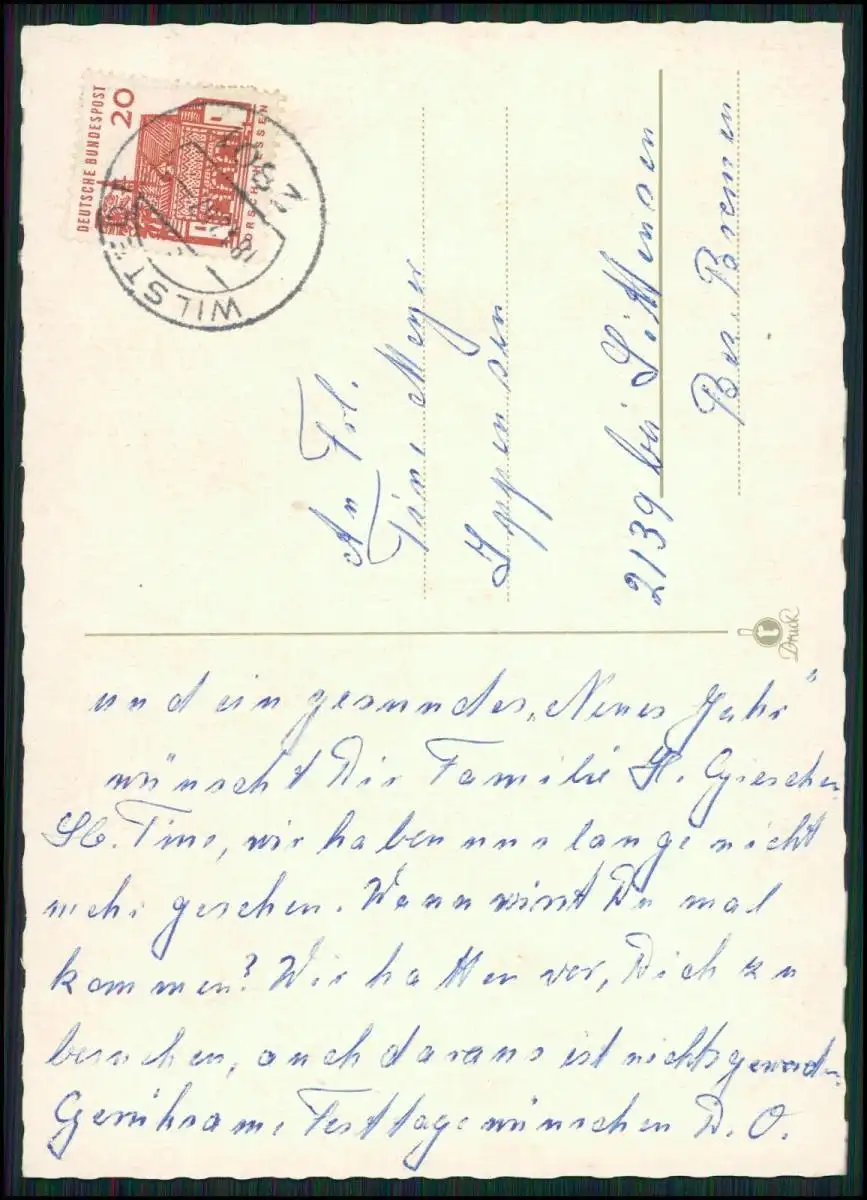 DEUTSCHE BUNDESPOST
20
LORSCH HESSEN
WILSTER
An Frl.
Tine Meyer
Ippensen
2139 bei Sittensen
Bez. Bremen
Druck
und ein gesundes „Neues Jahr"
wünscht Dir Familie H. Gieschen
Lb. Tine, wir haben uns lange nicht
mehr gesehen. Wann wirst Du mal
kommen? Wir hatten vor, Dich zu
besuchen, auch daraus ist nichts geword.
Geruhsame Festtage wünschen D. O.